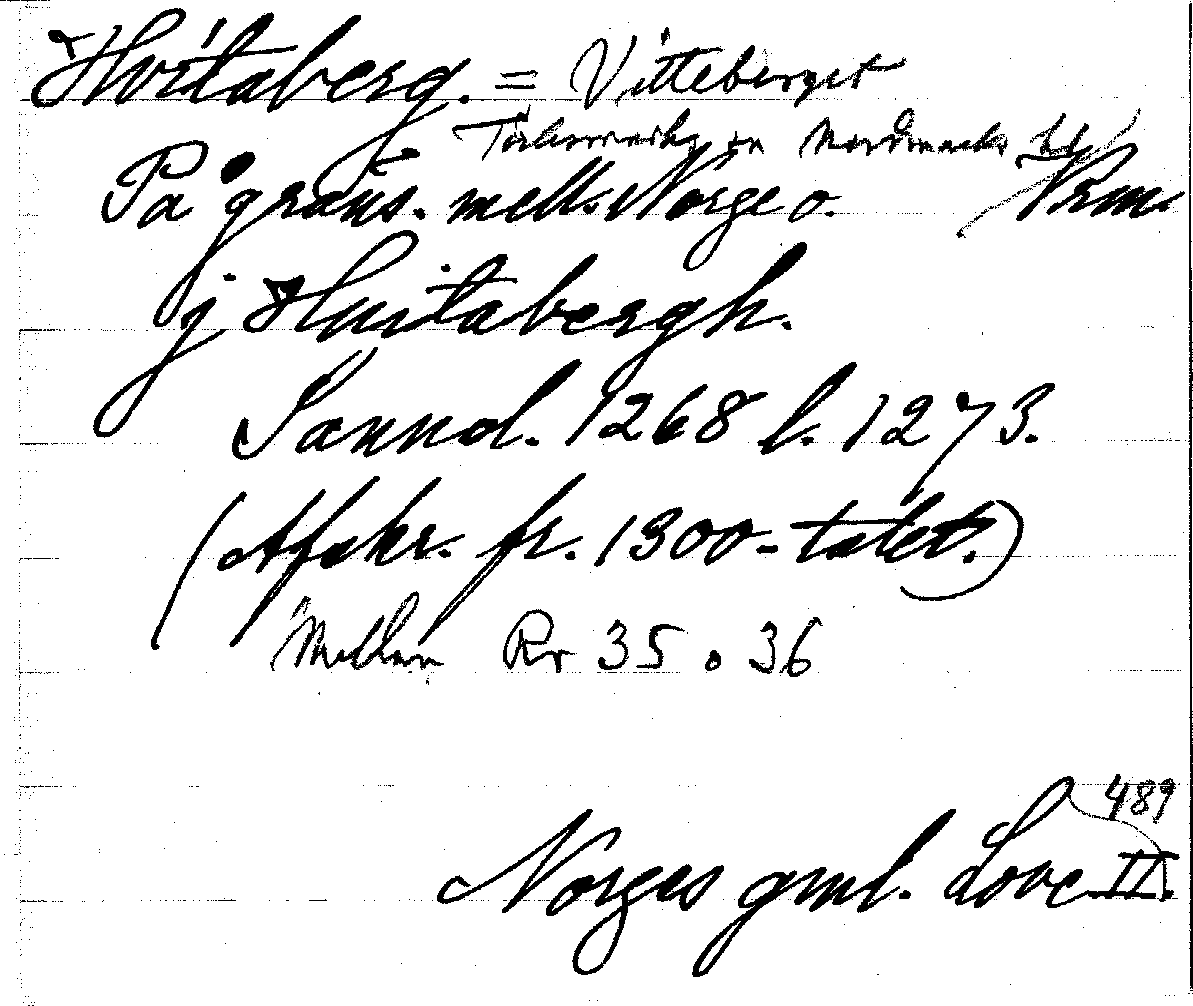 Hvitaberg. = Vitteberget
Töcksmarks sn Nordmarks hd
På gräns. mell. Norge o. Vrm.
j Huitabergh.
Sannol. 1268 l. 1273.
(Afskr. fr. 1300-talet.)
Mellan Rr 35 o 36
489
Norges gml. Love II.